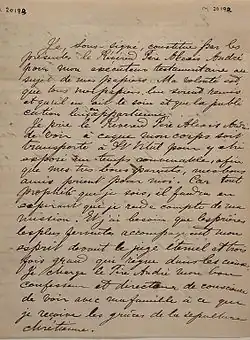 M 20198
M 20198
Je, sous-signé, constitue par les
présentes le Révérend Père Alexis André
pour mon exécuteur testamentaire au
sujet de mes papiers. Ma volonté est
que tous mes papiers lui soient remis
et qu'il en ait le soin et que la publi-
cation lui appartienne.
Je prie le Révérend Père Alexis André
de voir à ce que mon corps soit
transporté à St Vital pour y être
exposé un temps convenable, afin
que mes très bons parents, mes bons
amis prient pour moi. Car tout
prophète que je sois, il faudra en
expirant que je rende compte de ma
mission. Et j'ai besoin que les prières
les plus ferventes accompagnent mon
esprit devant le juge éternel et trois
fois grand qui règne dans les cieux.
Je charge le Père André mon bon
confesseur et directeur de conscience
de voir avec ma famille à ce que
je reçoive les grâces de la sépulture
chrétienne.